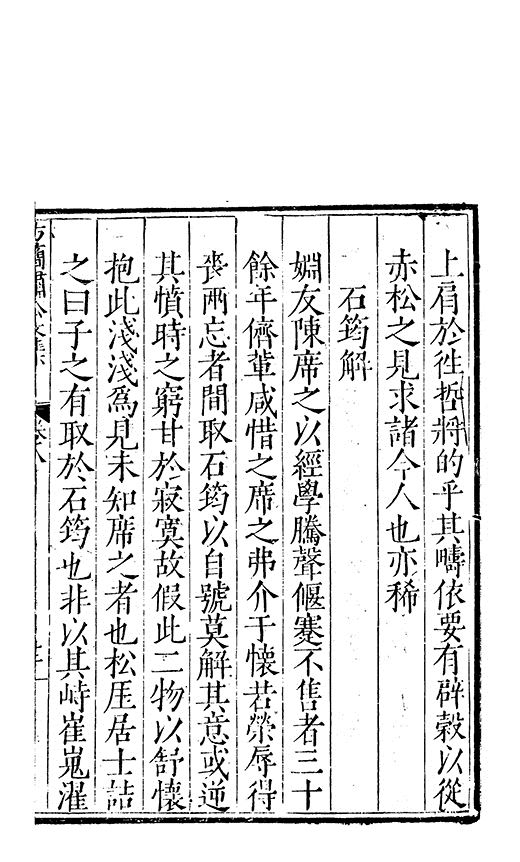 上肩於徃哲將的乎其疇依要有辟穀以從
赤松之見求諸今人也亦稀
石筠解
婣友陳席之以經學騰聲偃蹇不售者三十
餘年儕輩咸惜之席之弗介于懷若榮辱得
喪兩忘者間取石筠以自號莫解其意或逆
其憤時之窮甘於寂寞故假此二物以舒懷
抱此淺淺爲見未知席之者也松厓居士詰
之曰子之有取於石筠也非以其峙崔嵬濯
簡肅公文集
卷八